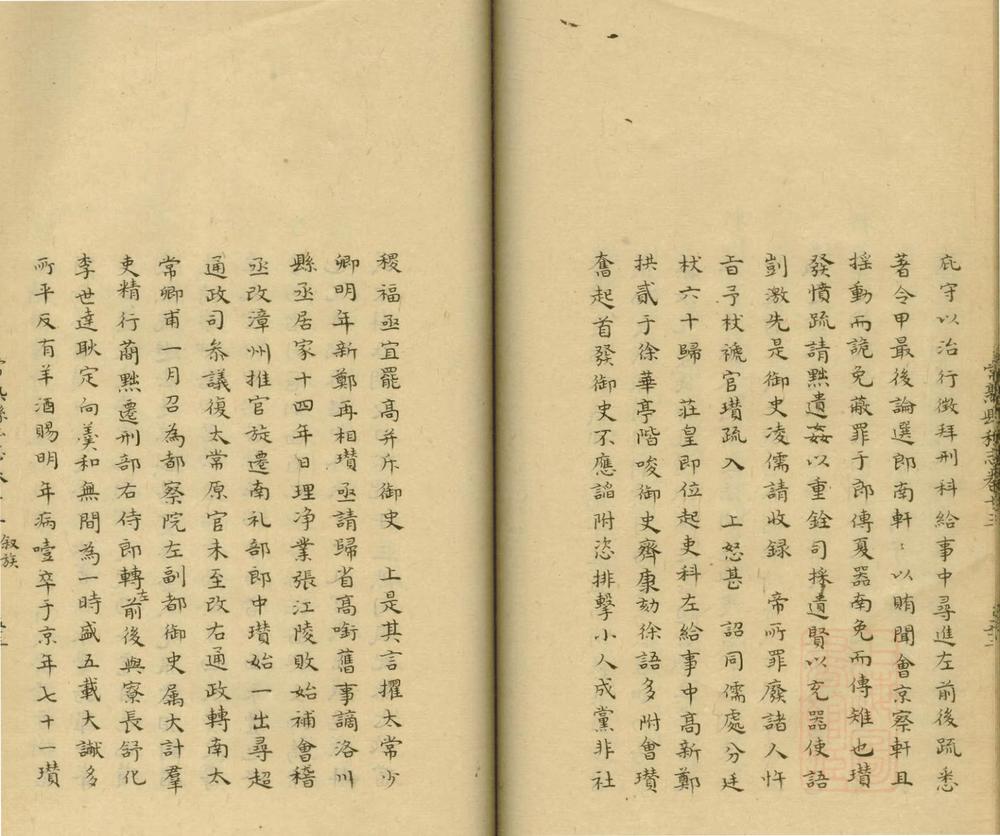 庇守以治行徵拜刑科給事中尋進左前後疏悉
著令甲最後論選郎南軒：以賄聞會京察軒且
揺動而詭免蔽罪于郎傅夏器南免而傅雉也瓉
發憤疏請黜遺姦以重銓司採遺賢以充器使語
剴激先是御史凌儒請收録　帝所罪廢諸人忤
㫖予杖褫官瓉疏入　上怒甚　詔同儒處分廷
杖六十歸　莊皇即位起吏科左給事中髙新鄭
拱貳于徐華亭階唆御史齊康劾徐語多附會瓉
奮起首發御史不應謟附恣排擊小人成黨非社
稷福亟宜罷髙并斥御史　上是其言擢太常少
卿明年新鄭再相瓉亟請歸省髙啣舊事謫洛川
縣丞居家十四年日理净業張江陵敗始補會稽
丞改漳州推官旋遷南礼部郎中瓉始一出尋超
通政司叅議復太常原官未至改右通政轉南太
常卿甫一月召為都察院左副都御史属大計羣
吏精行䔵黜遷刑部右侍郎轉左前後與寮長舒化
李世達耿定向羙和無間為一時盛五載大讞多
所平反有羊酒賜明年病噎卒于京年七十一瓉
常熟縣私志卷十三
叙族